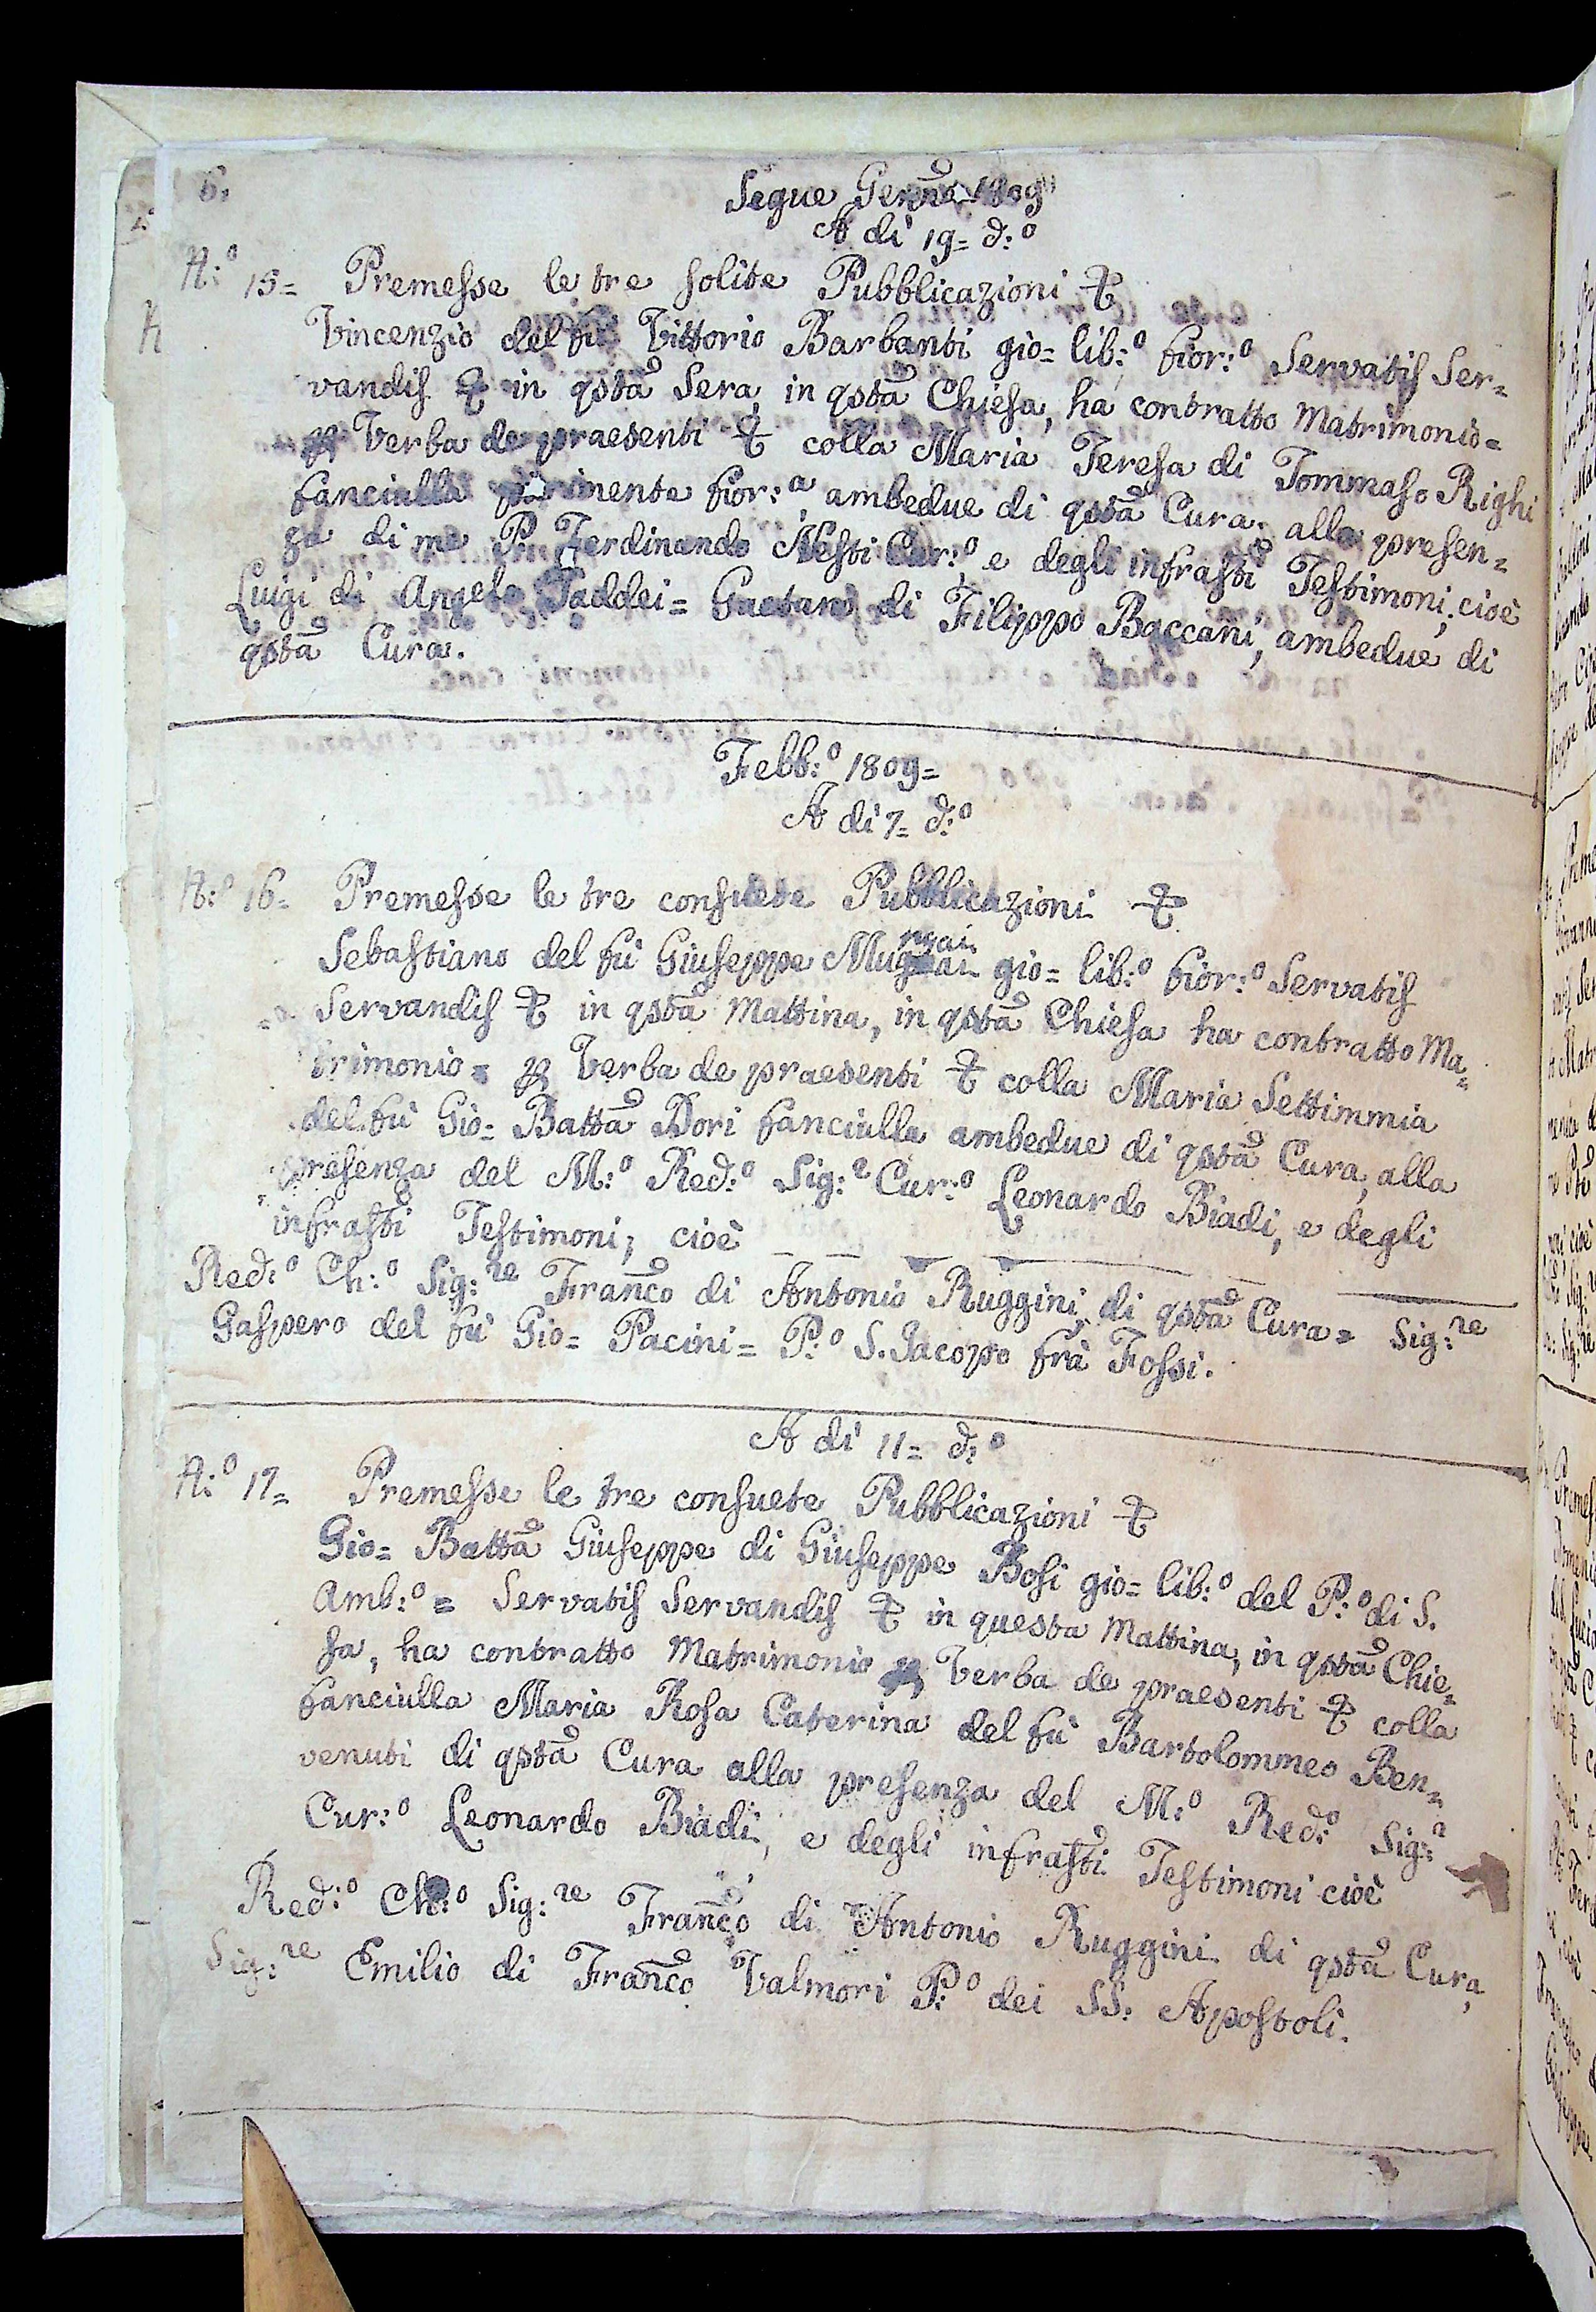 6.
Segue Genn̄o 1809
A dì 19= d:º
N:º 15= Premesse le tre solite Pubblicazioni &
Vincenzio del fù Vittorio Barbanti gio= lib:º fior:º Servatis Ser=
vandis & in qstā Sera, in qstā Chiesa, ha contratto Matrimonio=
p Verba de praesenti & colla Maria Teresa di Tommaso Righi
fanciulla parimente fior:ª ambedue di qstā Cura: alla presen=
za di me P. Ferdinando Nesti Cur:º e degli infrastī Testimoni; cioè
Luigi di Angelo Taddei= Gaetano di Filippo Baccani, ambedue di
qstā Cura.
Febb:º 1809=
A dì 7= d:º
N:º 16= Premesse le tre consuete Pubblicazioni &
Sebastiano del fù Giuseppe Mugnai gio= lib:º fior:º Servatis
Servandis & in qstā Mattina, in qstā Chiesa ha contratto Ma=
trimonio= p Verba de praesenti & colla Maria Settimmia
del fù Gio= Battā Dori fanciulla ambedue di qstā Cura, alla
presenza del M:º Red:º Sig:r Cur:º Leonardo Biadi, e degli
infrastī Testimoni; cioè
Red:º Ch:º Sig:re Franc̄o di Antonio Ruggini di qstā Cura= Sig:re
Gaspero del fù Gio= Pacini= P:º S. Jacopo frà Fossi.
A dì 11= d:º
N:º 17= Premesse le tre consuete Pubblicazioni &
Gio= Battā Giuseppe di Giuseppe Bosi gio= lib:º del P:º di S.
Amb:º = Servatis Servandis & in questa Mattina, in qstā Chie=
sa, ha contratto Matrimonio p Verba de praesenti & colla
fanciulla Maria Rosa Caterina del fù Bartolommeo Ben=
venuti di qstā Cura alla presenza del M:º Red:º Sig:r
Cur:º Leonardo Biadi, e degli infrastī Testimoni cioè
Red:º Ch:º Sig:re Franc̄o di Antonio Ruggini di qstā Cura,
Sig:re Emilio di Franc̄o Valmori P:º dei SS: Apostoli.